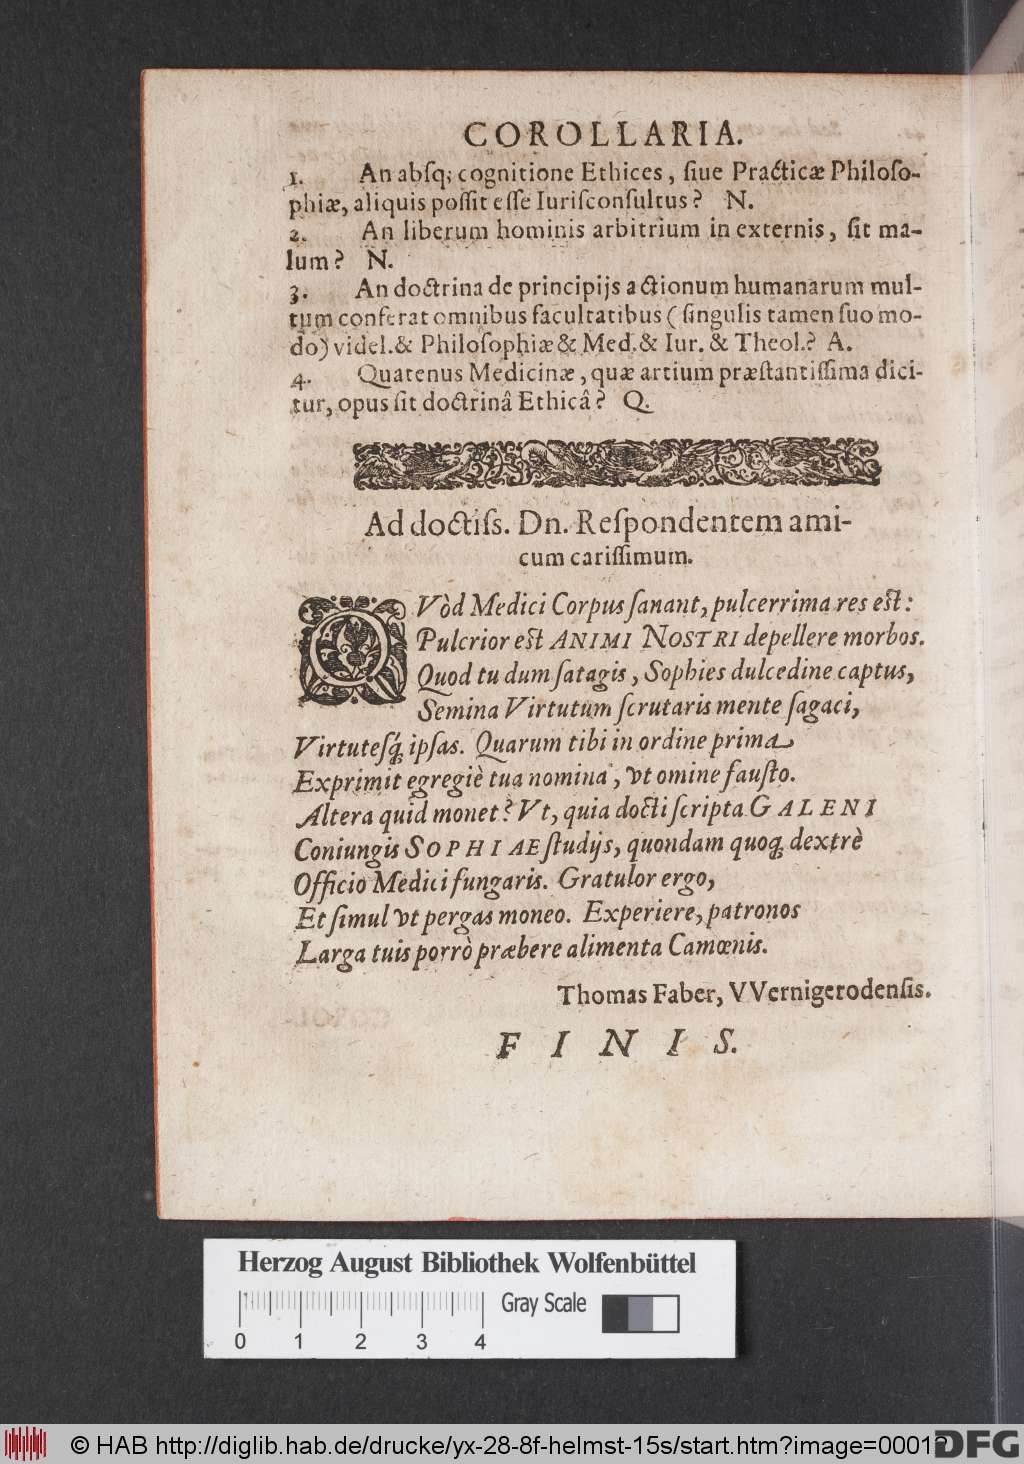 COROLLARIA.
1. An absq; cognitione Ethices, ſiue Practicæ Philoſo-
phiæ, aliquis poſſit eſſe Iuriſconſultus? N.
2. An liberum hominis arbitrium in externis, ſit ma-
lum? N.
3. An doctrina de principijs actionum humanarum mul-
tum conferat omnibus facultatibus (ſingulis tamen ſuo mo-
do) videl. & Philoſophiæ & Med. & Iur. & Theol.? A.
4. Quatenus Medicinæ, quæ artium præſtantiſſima dici-
tur, opus ſit doctrinâ Ethicâ? Q.
Ad doctiſs. Dn. Reſpondentem ami-
cum cariſſimum.
QVòd Medici Corpus ſanant, pulcerrima res eſt:
Pulcrior eſt ANIMI NOSTRI depellere morbos.
Quod tu dum ſatagis, Sophies dulcedine captus,
Semina Virtutum ſcrutaris mente ſagaci,
Virtuteſq́; ipſas. Quarum tibi in ordine prima
Exprimit egregiè tua nomina, vt omine fauſto.
Altera quid monet? Vt, quia docti ſcripta GALENI
Coniungis SOPHIAE ſtudijs, quondam quoq; dextrè
Officio Medici fungaris. Gratulor ergo,
Et ſimul vt pergas moneo. Experiere, patronos
Larga tuis porrò præbere alimenta Camœnis.
Thomas Faber, VVernigerodenſis.
FINIS.
Herzog August Bibliothek Wolfenbüttel
Gray Scale
0 1 2 3 4
© HAB http://diglib.hab.de/drucke/yx-28-8f-helmst-15s/start.htm?image=0001
DFG